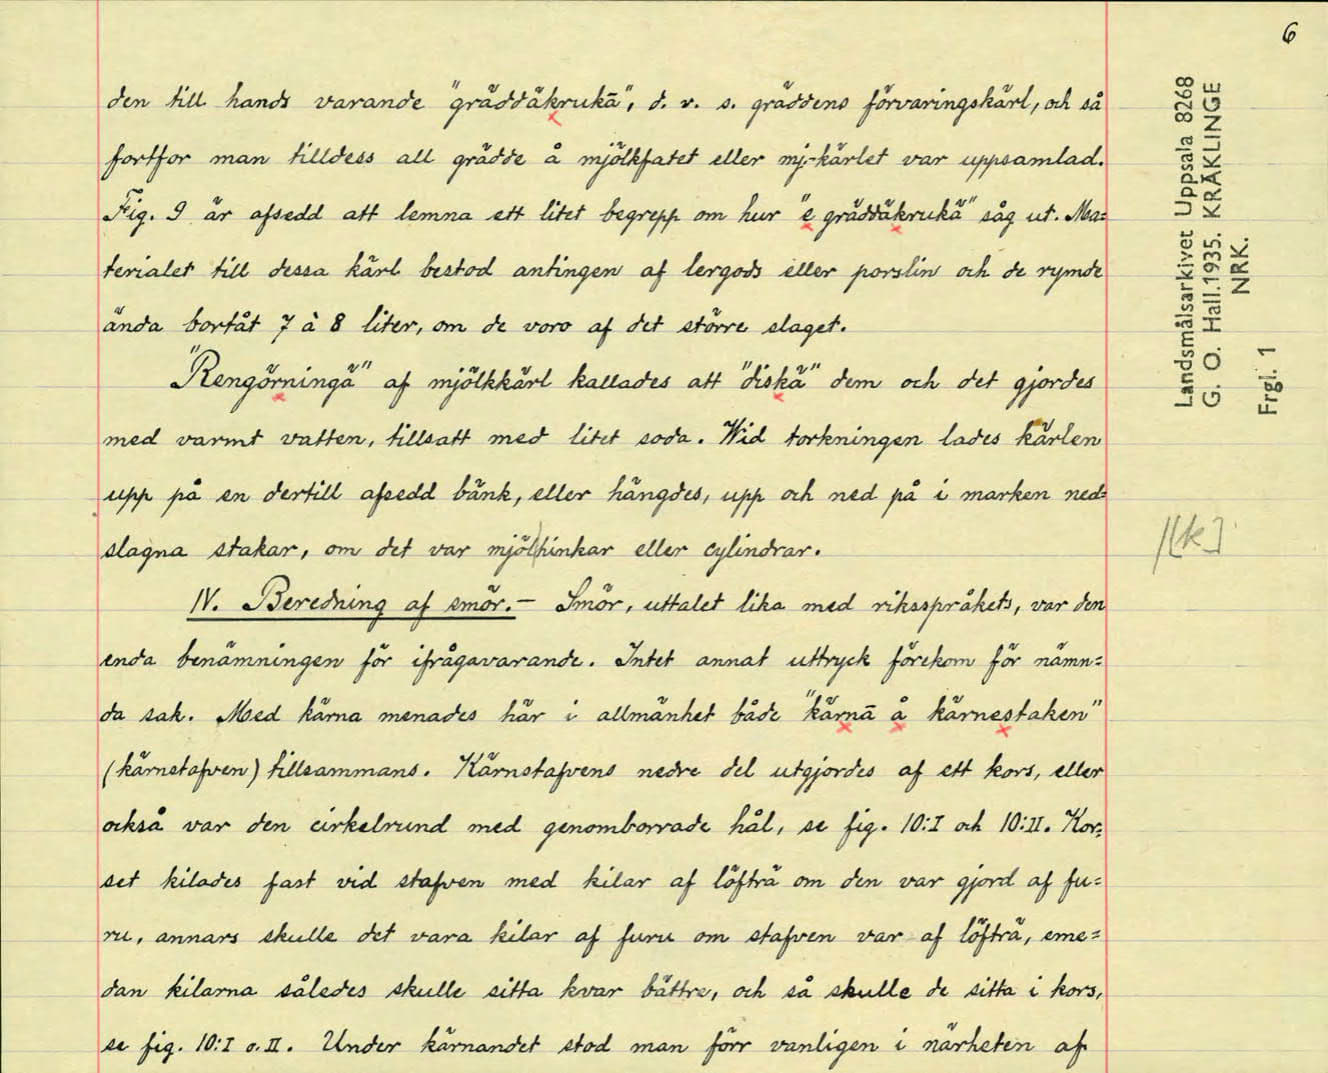 6
den till hands varande "gräddäkrukä", d. v. s. gräddens förvaringskärl, och så
fortfor man tilldess all grädde å mjölkfatet eller mj-kärlet var uppsamlad.
Fig. 9 är afsedd att lemna ett litet begrepp om hur "e gräddäkrukä" såg ut. Ma=
terialet till dessa kärl bestod antingen af lergods eller porslin och de rymde
ända bortåt 7 à 8 liter, om de voro af det större slaget.
"Rengörningä" af mjölkkärl kallades att "diskä" dem och det gjordes
med varmt vatten, tillsatt med litet soda. Wid torkningen lades kärlen
upp på en dertill afsedd bänk, eller hängdes, upp och ned på i marken ned=
slagna stakar, om det var mjölhinkar eller cylindrar.
IV. Beredning af smör.- Smör, uttalet lika med riksspråkets, var den
enda benämningen för ifrågavarande. Intet annat uttryck förekom för nämn=
da sak. Med kärna menades här i allmänhet både "kärnä å kärnestaken"
(kärnstafven) tillsammans. Kärnstafvens nedre del utgjordes af ett kors, eller
också var den cirkelrund med genomborrade hål, se fig. 10:I och 10:II. Kor=
set kilades fast vid stafven med kilar af löfträ om den var gjord af fu=
ru, annars skulle det vara kilar af furu om stafven var af löfträ, eme=
dan kilarna således skulle sitta kvar bättre, och så skulle de sitta i kors,
se fig. 10:I o. II. Under kärnandet stod man förr vanligen i närheten af
Landsmålsarkivet Uppsala 8268
G. O. Hall.1935. KRÄKLINGE
NRK.
Frgl. 1
/[k]